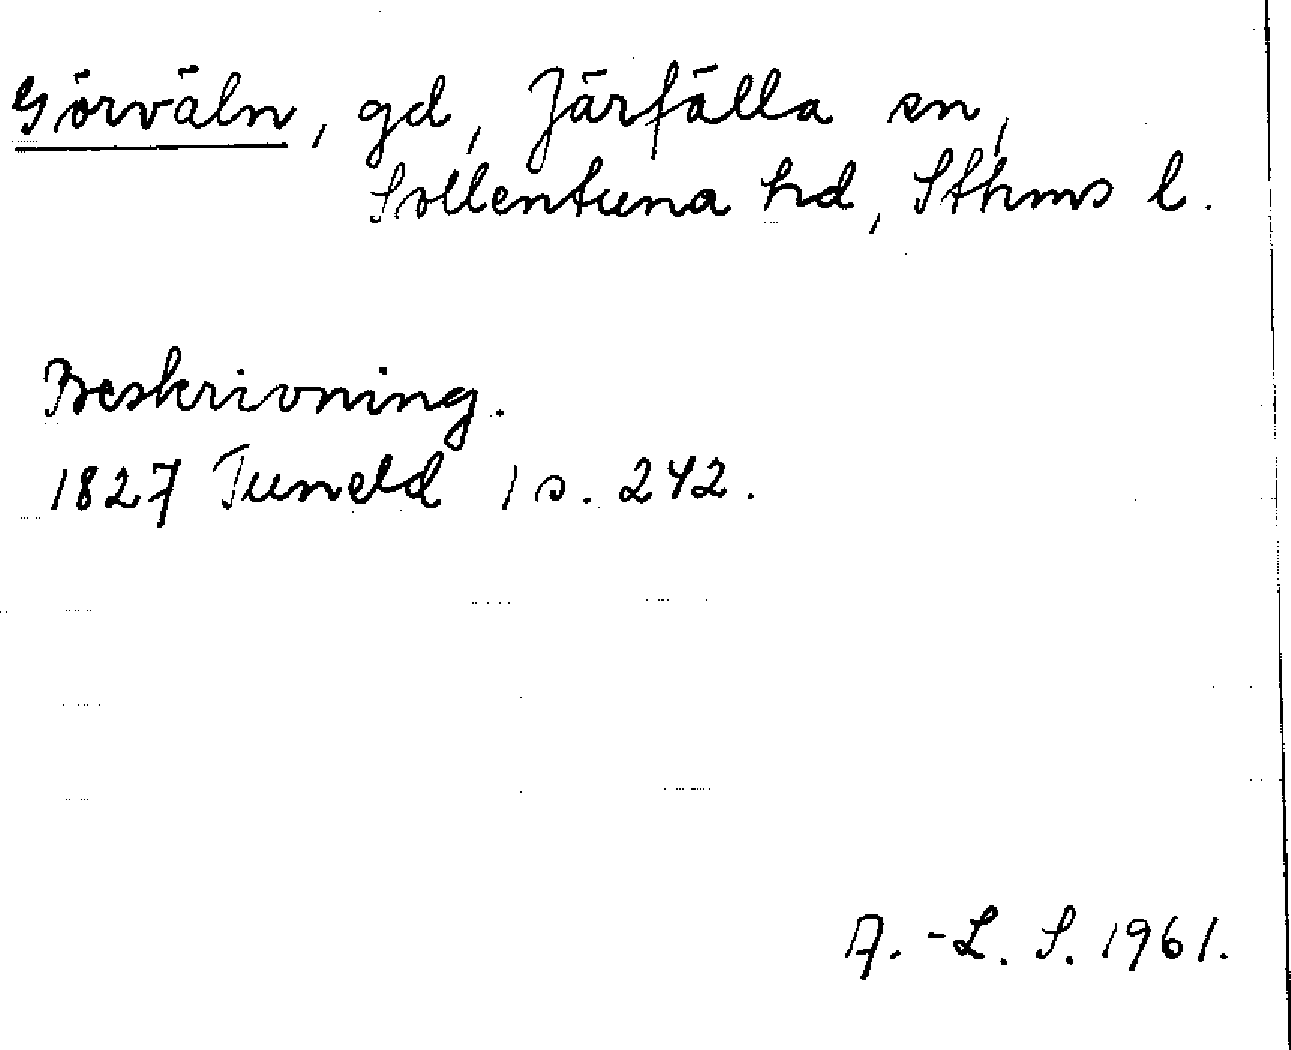 Görväln, gd, Järfälla sn,
Sollentuna hd, Sthms l.
Beskrivning.
1827 Tuneld 1 s. 242.
A.-L. S. 1961.